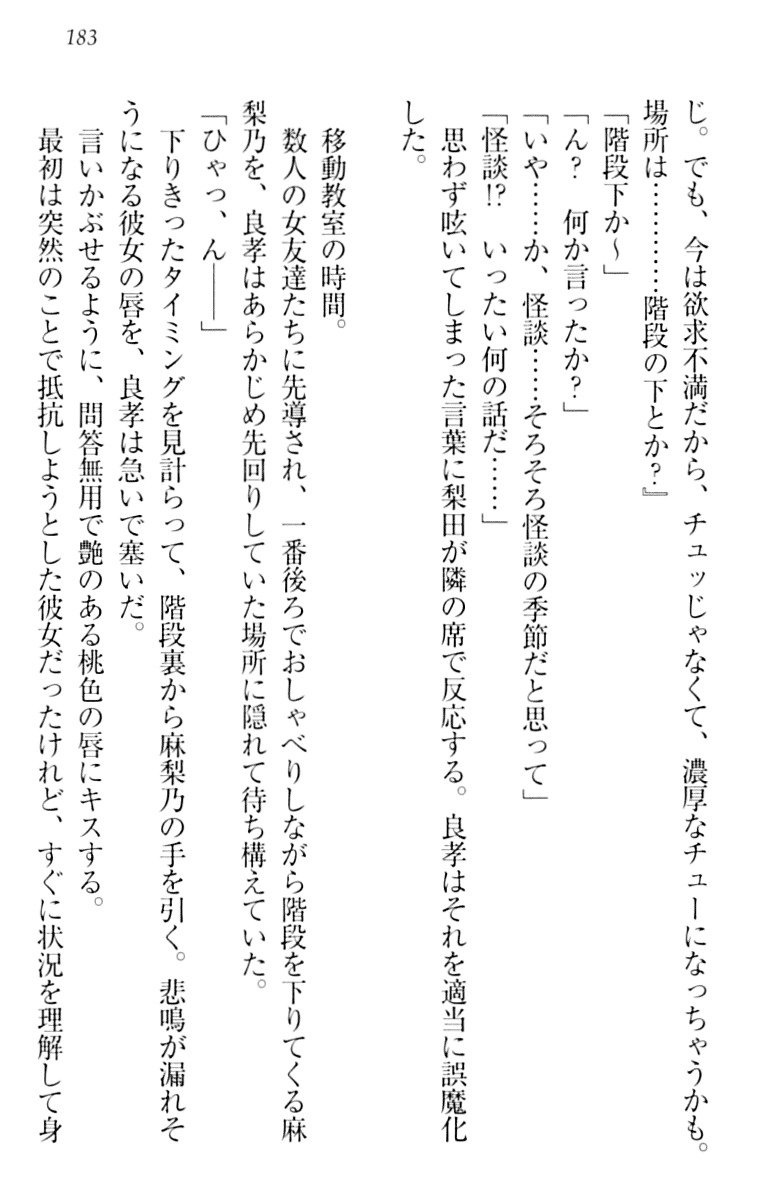 183
じ。でも、今は欲求不満だから、チュッじゃなくて、濃厚なチューになっちゃうかも。
場所は…………階段の下とか？』
「階段下か～」
「ん？　何か言ったか？」
「いや……か、怪談……そろそろ怪談の季節だと思って」
「怪談!?　いったい何の話だ……」
思わず呟いてしまった言葉に梨田が隣の席で反応する。良孝はそれを適当に誤魔化
した。
移動教室の時間。
数人の女友達たちに先導され、一番後ろでおしゃべりしながら階段を下りてくる麻
梨乃を、良孝はあらかじめ先回りしていた場所に隠れて待ち構えていた。
「ひゃっ、ん――」
下りきったタイミングを見計らって、階段裏から麻梨乃の手を引く。悲鳴が漏れそ
うになる彼女の唇を、良孝は急いで塞いだ。
言いかぶせるように、問答無用で艶のある桃色の唇にキスする。
最初は突然のことで抵抗しようとした彼女だったけれど、すぐに状況を理解して身